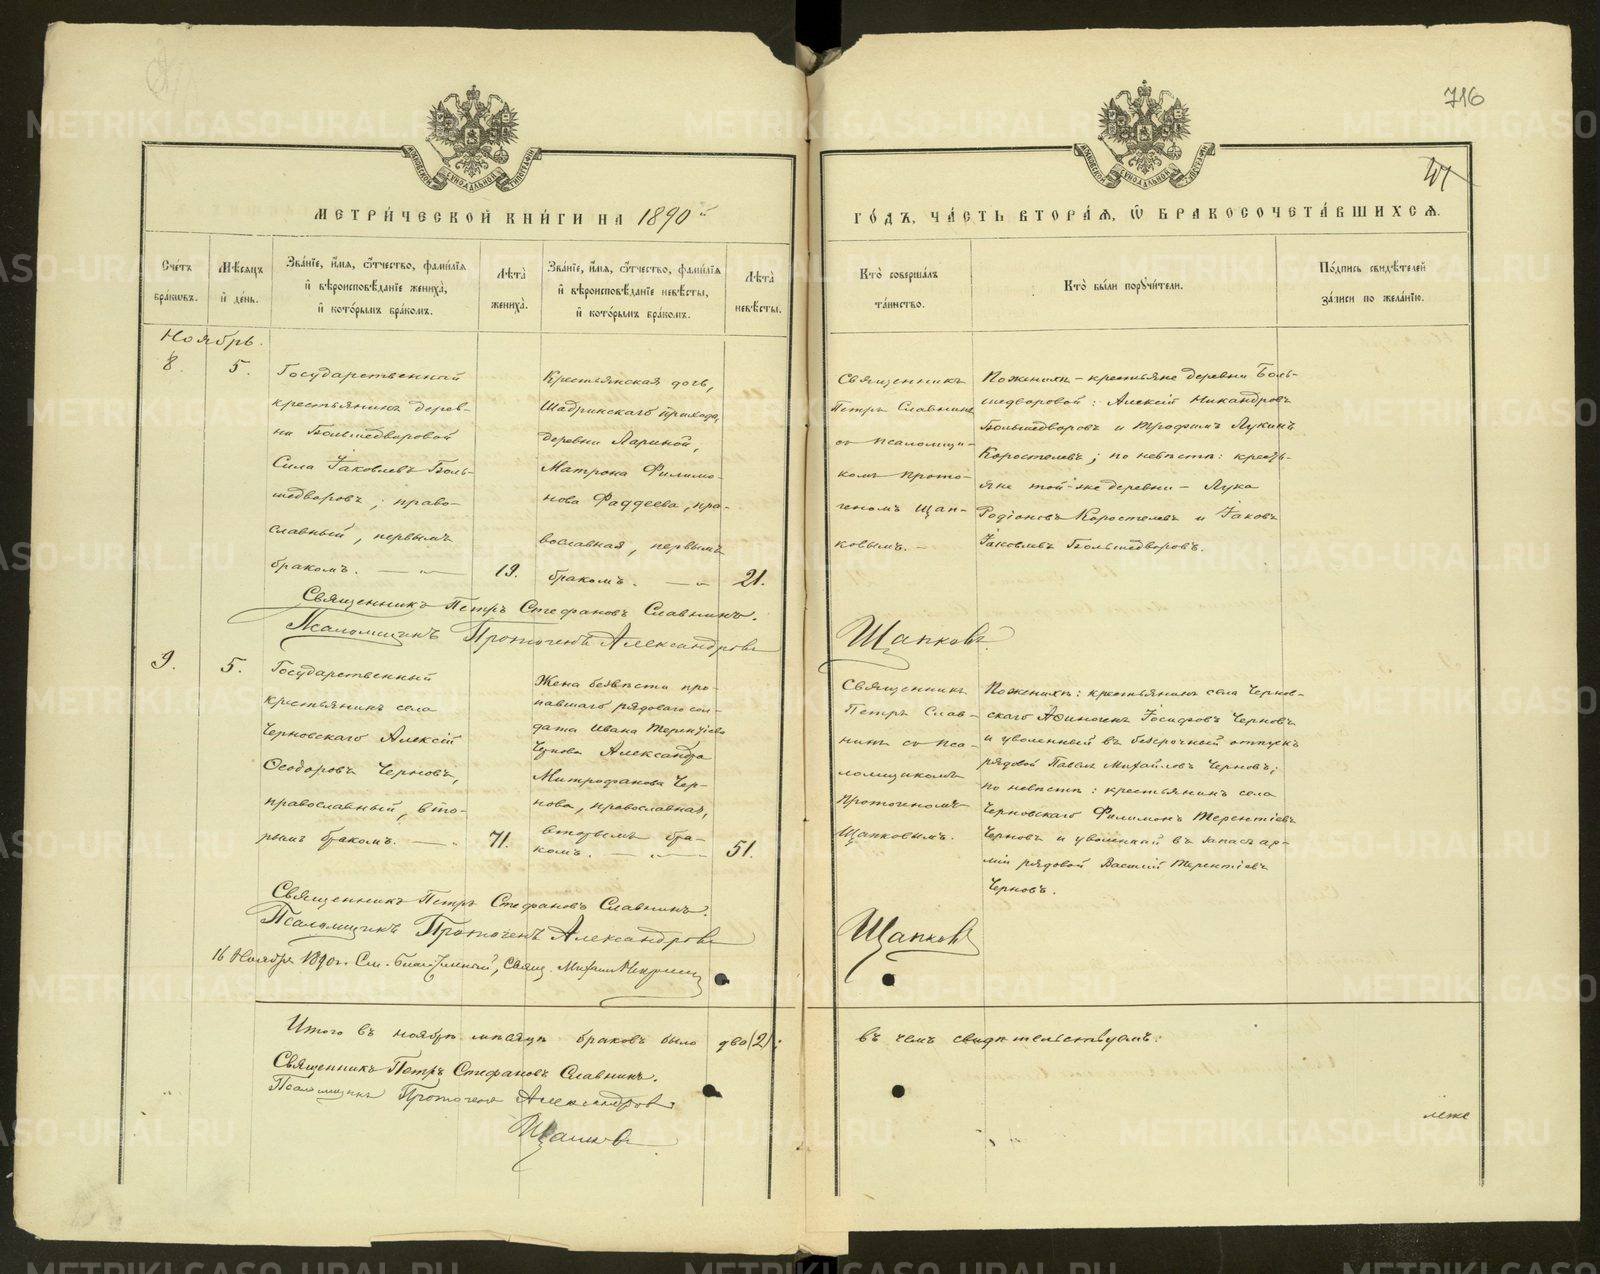 716
41
МЕТРИЧЕСКОЙ КНИГИ НА 1890 й
ГОДЪ, ЧАСТЬ ВТОРАЯ, Ѡ БРАКОСОЧЕТАВШИХСЯ.
Счетъ браковъ.
Мѣсяцъ и день.
Званіе, имя, отчество, фамилія и вѣроисповѣданіе жениха, и которымъ бракомъ.
Лѣта жениха.
Званіе, имя, отчество, фамилія и вѣроисповѣданіе невѣсты, и которымъ бракомъ.
Лѣта невѣсты.
Кто совершалъ таинство.
Кто были поручители.
Подпись свидѣтелей записи по желанію.
Ноябрь.
8. 5.
Государственный
крестьянинъ дерев-
ни Большедворовой
Сила Іаковлевъ Боль-
шедворовъ; право-
славный, первымъ
бракомъ.
19.
Крестьянская дочь,
Шадринскаго прихода,
деревни Лариной,
Матрона Филимо-
нова Фаддеева, пра-
вославная, первымъ
бракомъ.
21.
Священникъ
Петръ Славнинъ
съ псаломщи-
комъ Прото-
геномъ Щап-
ковымъ.
По женихѣ – крестьяне деревни Боль-
шедворовой: Алексій Никандровъ
Большедворовъ и Трофимъ Лукинъ
Коростелевъ; по невѣстѣ: кресть-
яне той-же деревни – Лука
Родіоновъ Коростелевъ и Іаковъ
Іаковлевъ Большедворовъ.
Священникъ Петръ Стефановъ Славнинъ.
Псаломщикъ Протогенъ Александровъ
Щапковъ
9. 5.
Государственный
крестьянинъ села
Черновскаго Алексій
Ѳеодоровъ Черновъ,
православный, вто-
рымъ бракомъ.
71.
Жена безвѣсти про-
павшаго рядоваго сол-
дата Ивана Терентіева
Чернова Александра
Митрофанова Чер-
нова, православная,
вторымъ бра-
комъ.
51.
Священникъ
Петръ Слав-
нинъ съ пса-
ломщикомъ
Протогеномъ
Щапковымъ.
По женихѣ: крестьянинъ села Чернов-
скаго Аѳиногенъ Іосифовъ Черновъ
и уволенный въ безсрочный отпускъ
рядовой Павелъ Михайловъ Черновъ;
по невѣстѣ: крестьянинъ села
Черновскаго Филимонъ Терентіевъ
Черновъ и уволенный въ запасъ ар-
міи рядовой Василій Терентіевъ
Черновъ.
Священникъ Петръ Стефановъ Славнинъ.
Псаломщикъ Протогенъ Александровъ
Щапковъ
16 Ноября 1890 г. См. Благочинный, Свящ. Михаил
Итого въ ноябрѣ мѣсяцѣ браковъ было два (2);
въ чемъ свидѣтельствуемъ:
Священникъ Петръ Стефановъ Славнинъ.
Псаломщикъ Протогенъ Александровъ
Щапковъ
METRIKI.GASO-URAL.RU